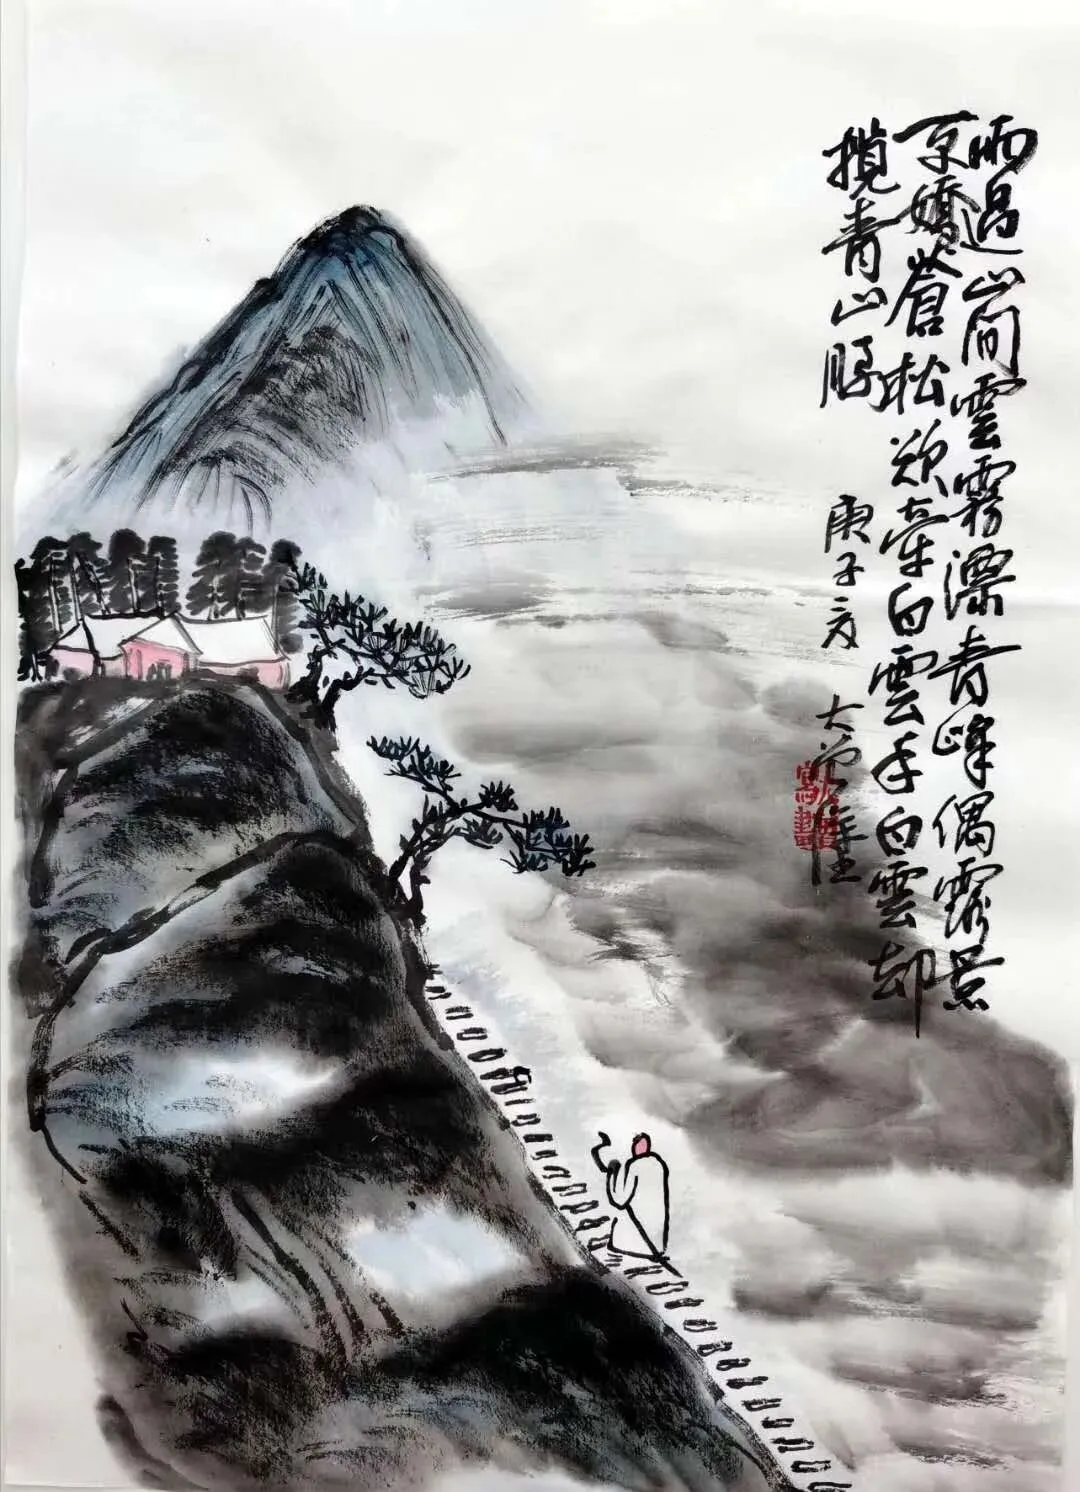 雨過山間雲霧漂青峰偶露景
亦嬌蒼松欲牽白雲手白雲却
攬青山腰
庚子
大